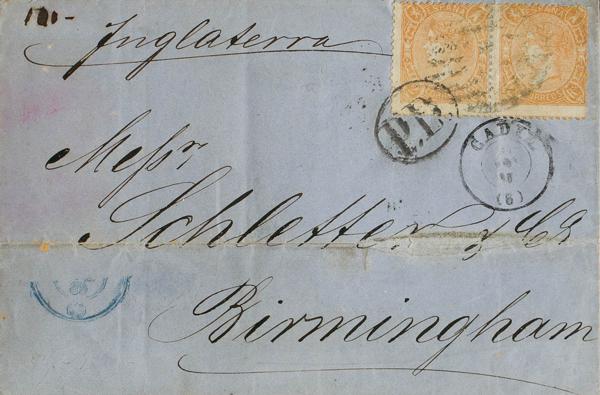 Inglaterra
P.D.
CADIZ
(6)
Messrs
Schletter y Co
Birmingham